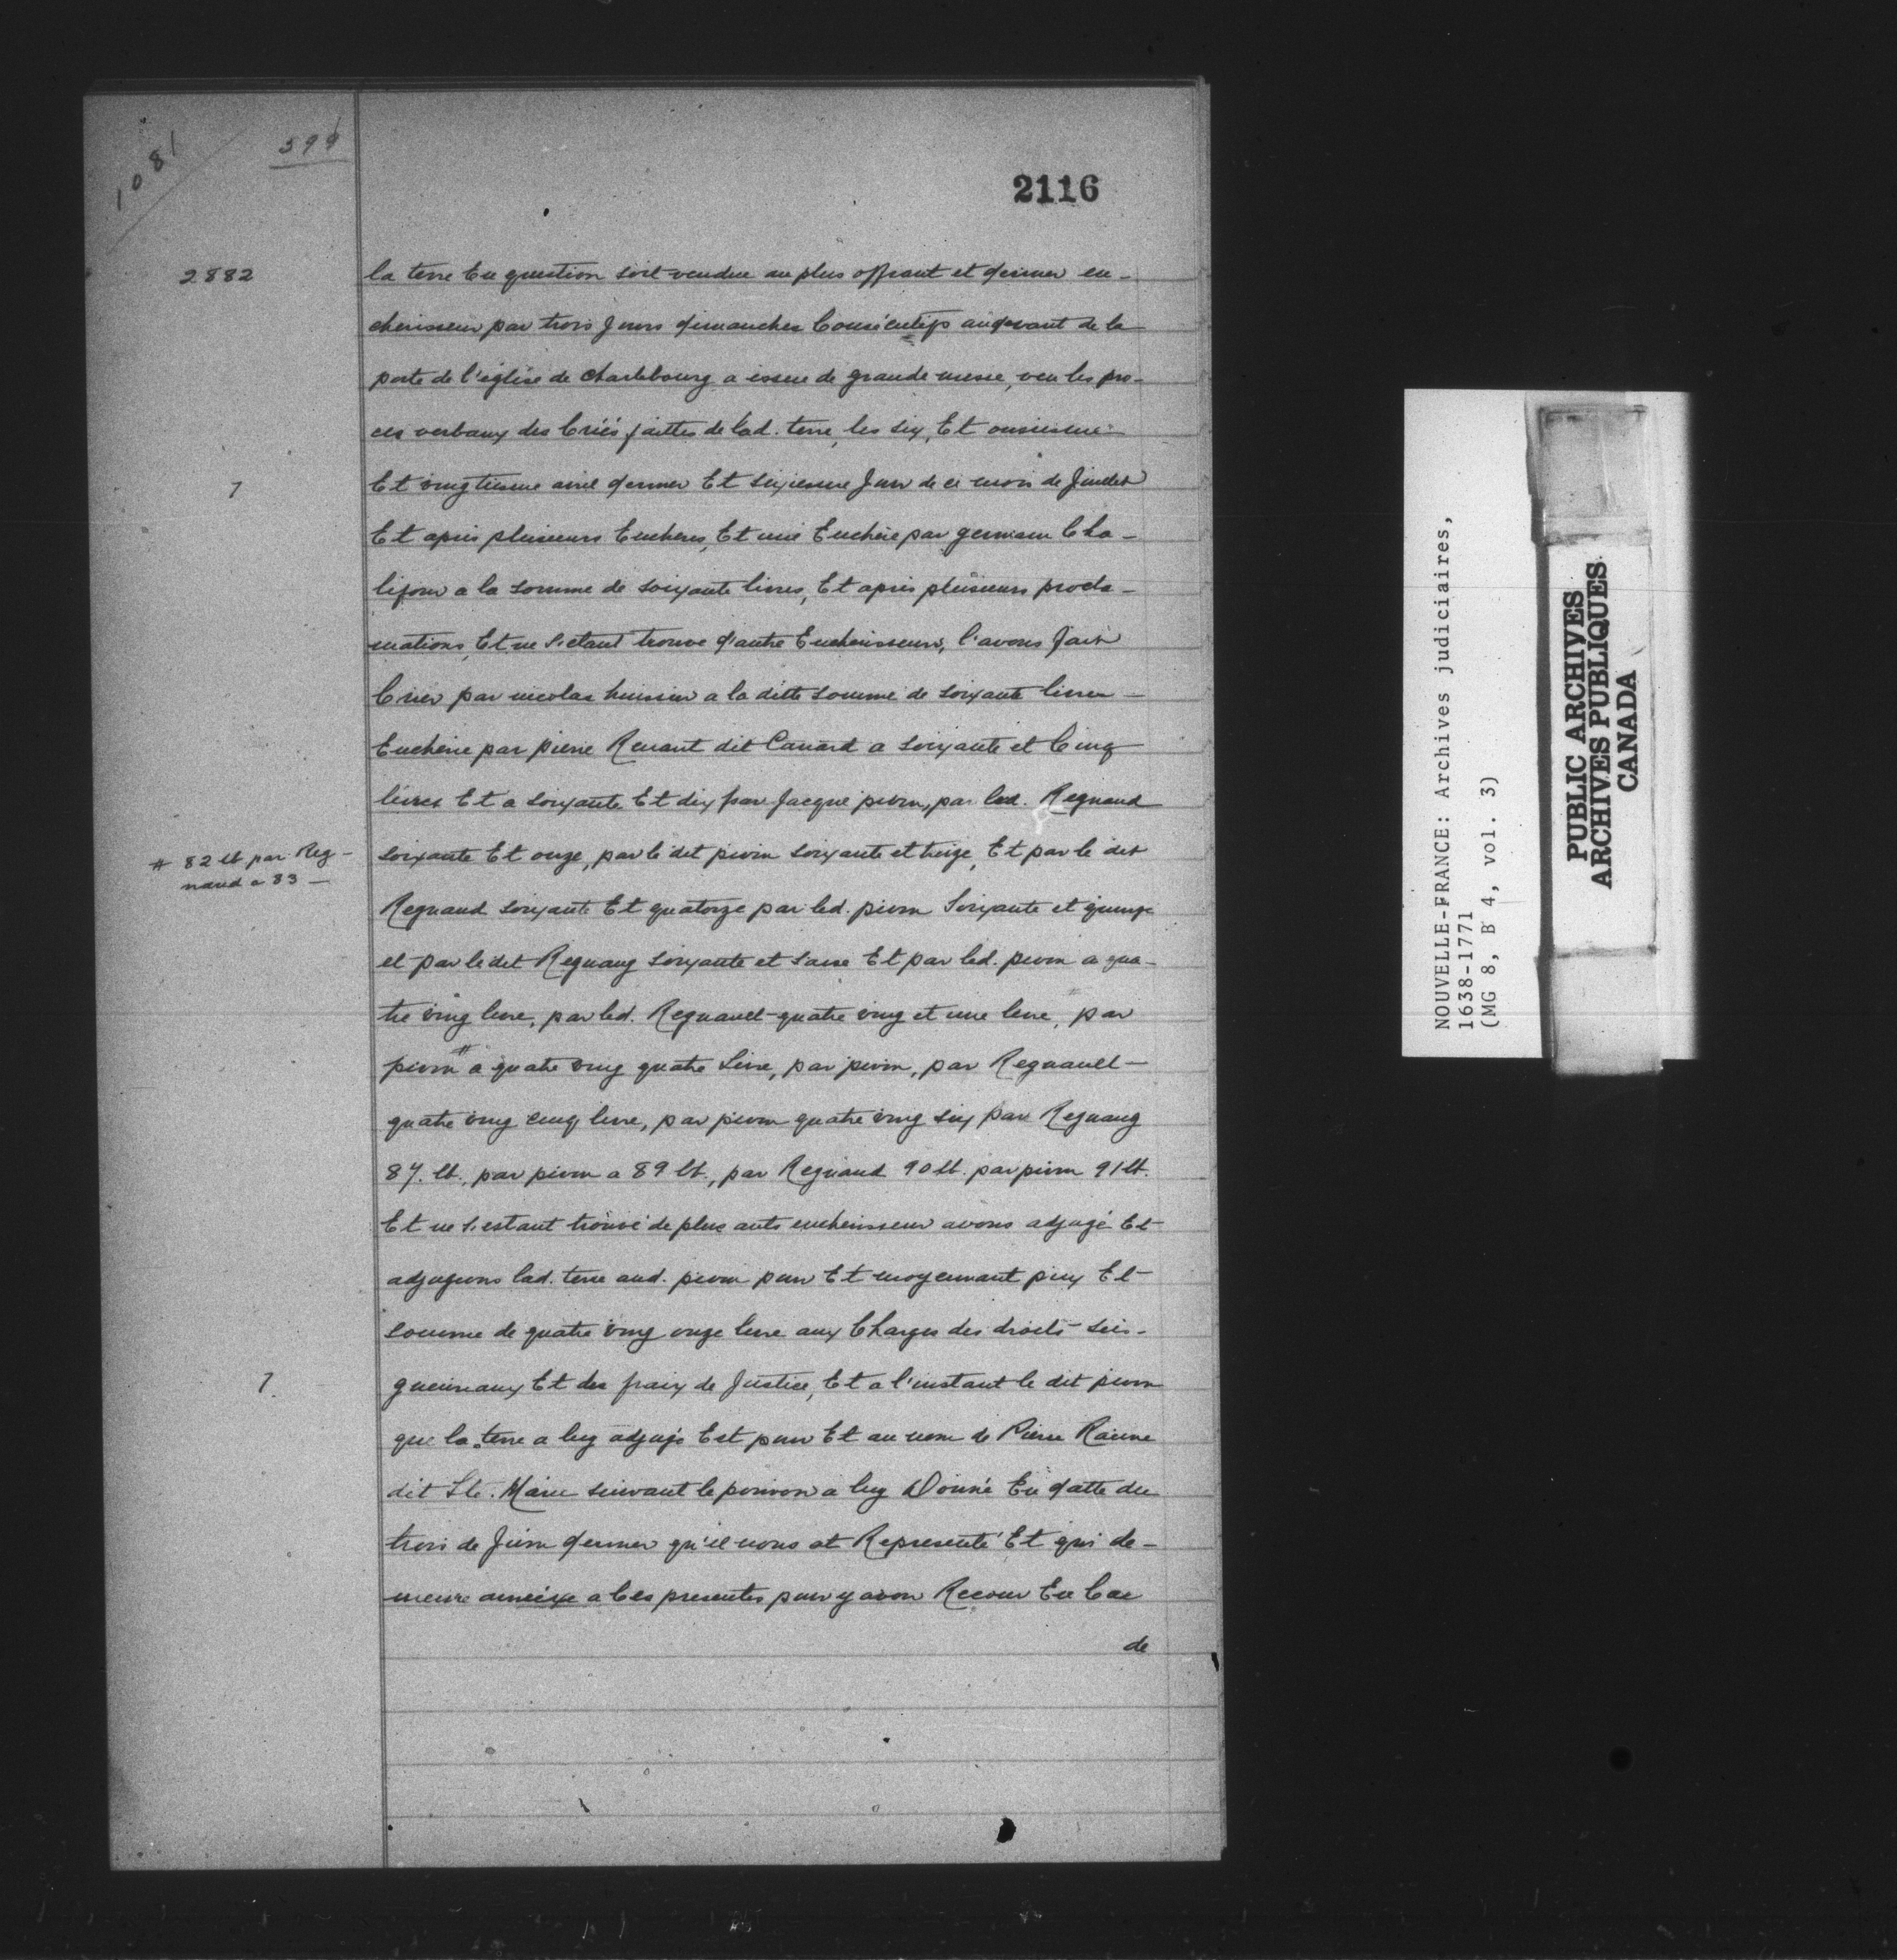 1081
599
2116
2882
la terre En question soit vendue au plus offrant et dernier en-
cherisseur par trois Jours dimanches Consécutifs audevant de la
porte de l'église de charlebourg a issue de grande messe, veu les pro-
ces verbaux des Criés faittes de lad. terre, les six, Et onsiesme
Et vingtiesme avril dernier Et sixiesme Jour de ce mois de Juillet
Et après plusieurs Encheres, Et mis Enchère par germain Cha-
lifour a la somme de soixante livres, Et après plusieurs procla-
mations, Et ne s'etant trouve d'autre Encherisseurs, l'avons fait
Crier par nicolas huissier a la ditte somme de soixante livres -
Enchérie par pierre Renant dit Canard a soixante et Cinq
livres Et a soixante Et dix par Jacque pivin, par led. Regnaud
# 82 lt par Reg-
naud a 83 -
soixante Et onze, par le dit pivin soixante et treize, Et par le dit
Regnaud soixante Et quatorze par led. pivin Soixante et quinze
et par le dit Regnaug soixante et saise Et par led. pivin a qua-
tre ving livre, par led. Regnauld quatre ving et une livre, par
pivin # a quatre ving quatre Livre, par pivin, par Regnauld -
quatre ving cinq livre, par pivin quatre ving six par Regnaug
87. lt., par pivin a 89 lt., par Regnaud 90 lt. par pivin 91 lt.
Et ne s'estant trouvé de plus auts encherisseur avons adjugé Et
adjugeons lad. terre aud. pivin pour Et moyennant prix Et
somme de quatre ving onze livre aux Charges des droits sei-
gneuriaux Et des fraix de Justice, Et a l'instant le dit pivin
que la terre a luy adjugé Est pour Et au nom de Pierre Racine
dit Ste. Marie suivant le pouvoir a luy Donné En datte du
trois de Juin dernier qu'il nous at Representé Et qui de-
meure annéxe a Ces presentes pour y avoir Recour En Cas
de
NOUVELLE-FRANCE: Archives judiciaires,
1638-1771
(MG 8, B 4, vol. 3)
PUBLIC ARCHIVES
ARCHIVES PUBLIQUES
CANADA